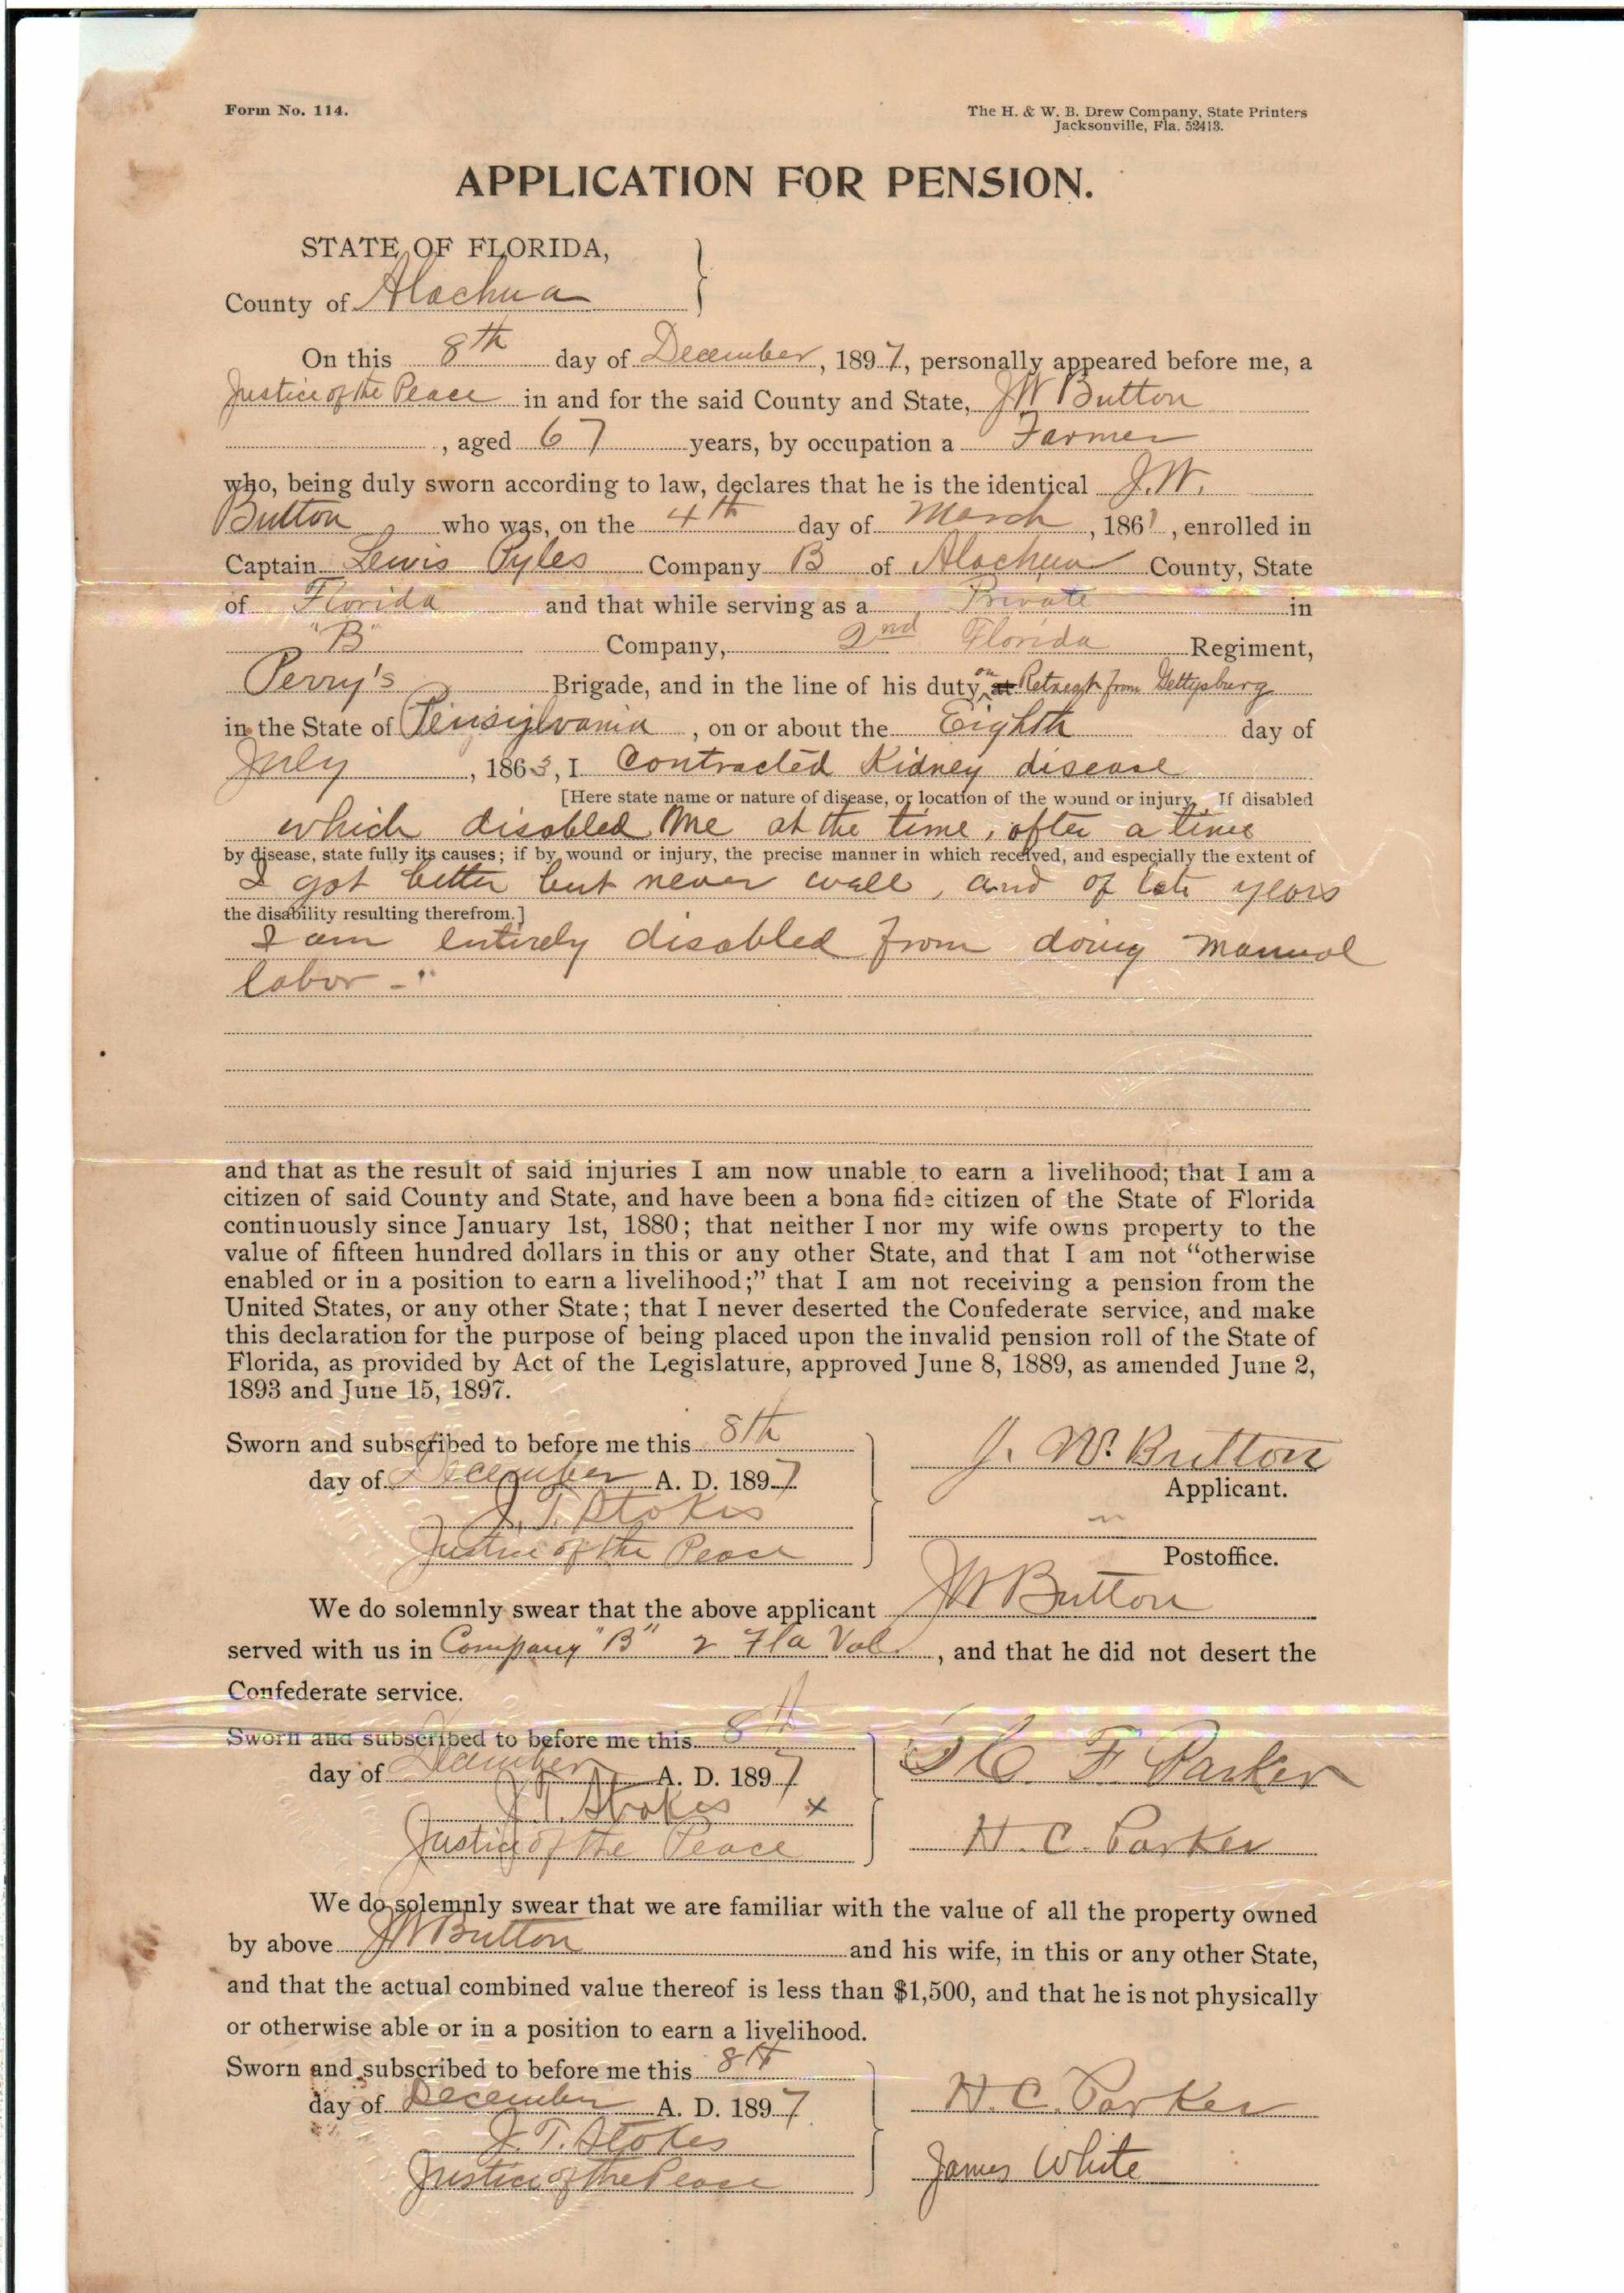 Form No. 114.
The H. & W. B. Drew Company, State Printers
Jacksonville, Fla. 52413.
APPLICATION FOR PENSION.
STATE OF FLORIDA,
County of Alachua
On this 8th day of December, 1897, personally appeared before me, a
Justice of the Peace in and for the said County and State, JW Button
, aged 67 years, by occupation a Farmer
who, being duly sworn according to law, declares that he is the identical J.W.
Button, who was, on the 4th day of March, 1861, enrolled in
Captain Lewis Pyles Company B of Alachua County, State
of Florida and that while serving as a Private in
"B" Company, 2nd Florida Regiment,
Perry's Brigade, and in the line of his duty on at Retreat from Gettysburg
in the State of Pensylvania, on or about the Eighth day of
July, 1863, I Contracted Kidney disease
[Here state name or nature of disease, or location of the wound or injury. If disabled
which disabled Me at the time, after a time
by disease, state fully its causes; if by wound or injury, the precise manner in which received, and especially the extent of
I got better but never well, and of late years
the disability resulting therefrom.]
I am entirely disabled from doing manual
labor -"
and that as the result of said injuries I am now unable to earn a livelihood; that I am a
citizen of said County and State, and have been a bona fide citizen of the State of Florida
continuously since January 1st, 1880; that neither I nor my wife owns property to the
value of fifteen hundred dollars in this or any other State, and that I am not "otherwise
enabled or in a position to earn a livelihood;" that I am not receiving a pension from the
United States, or any other State; that I never deserted the Confederate service, and make
this declaration for the purpose of being placed upon the invalid pension roll of the State of
Florida, as provided by Act of the Legislature, approved June 8, 1889, as amended June 2,
1893 and June 15, 1897.
Sworn and subscribed to before me this 8th
day of December A. D. 1897
J. T. Stokes
Justice of the Peace
J. W. Button
Applicant.
Postoffice.
We do solemnly swear that the above applicant JW Button
served with us in Company "B" 2 Fla Vol., and that he did not desert the
Confederate service.
Sworn and subscribed to before me this 8th
day of December A. D. 1897
J. T. Stokes x
Justice of the Peace
F. Parker
H. C. Parker
We do solemnly swear that we are familiar with the value of all the property owned
by above JW Button and his wife, in this or any other State,
and that the actual combined value thereof is less than $1,500, and that he is not physically
or otherwise able or in a position to earn a livelihood.
Sworn and subscribed to before me this 8th
day of December A. D. 1897
J. T. Stokes
Justice of the Peace
H. C. Parker
James White